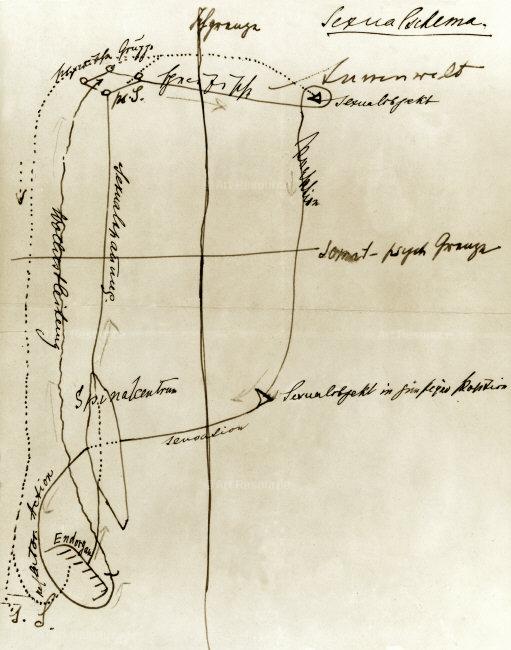 Sexualschema.
Ichgrenze
psychische Gruppe
Aussenwelt
ps. S.
Sexualobjekt
Reaktion
Sexualspannung
Wollustleitung
Somat-psych Grenze
Spinalcentrum
Sexualobjekt in günstiger Position
sensation
Action
Endorgan